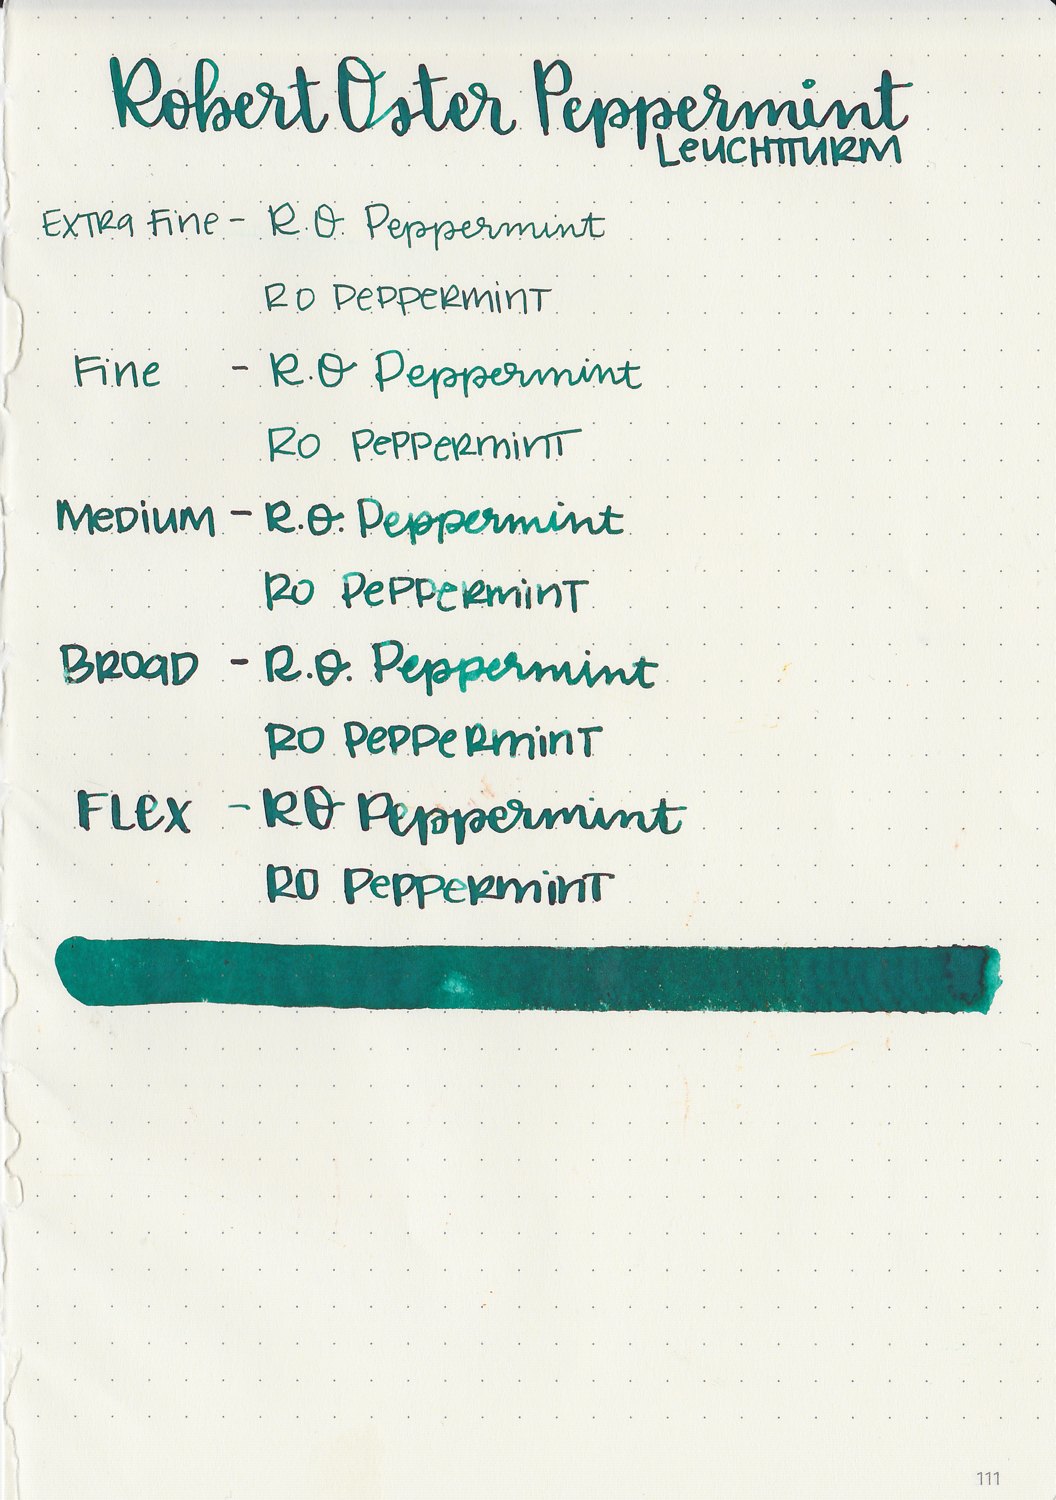 Robert Oster Peppermint
LEUCHTTURM
EXTRA FINE - R.O. Peppermint
RO PEPPERMINT
FINE - R.O Peppermint
RO PEPPERMINT
MEDIUM - R.O. Peppermint
RO PEPPERMINT
BROAD - R.O. Peppermint
RO PEPPERMINT
FLEX - RO Peppermint
RO PEPPERMINT
111